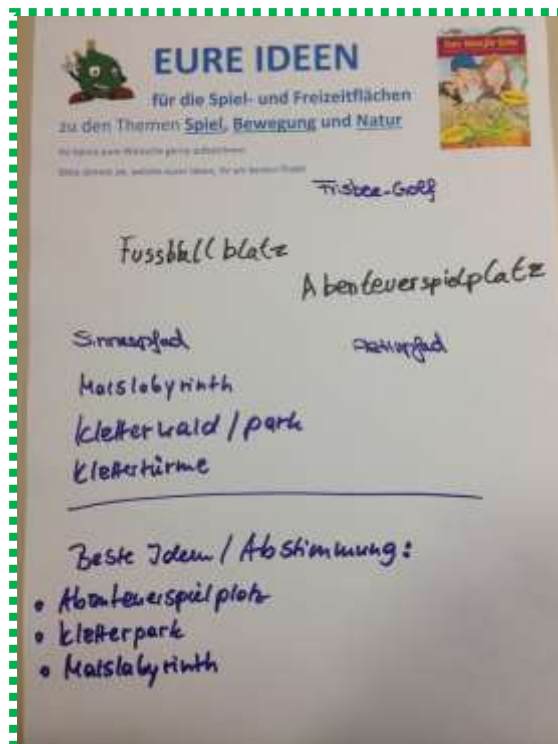 EURE IDEEN
für die Spiel- und Freizeitflächen
zu den Themen Spiel, Bewegung und Natur
Frisbee-Golf
Fussballblatz
Abenteuerspielplatz
Sinnespfad
Maislabyrinth
Kletterwald / park
Klettertürme
Beste Ideen / Abstimmung:
• Abenteuerspielplatz
• Kletterpark
• Maislabyrinth